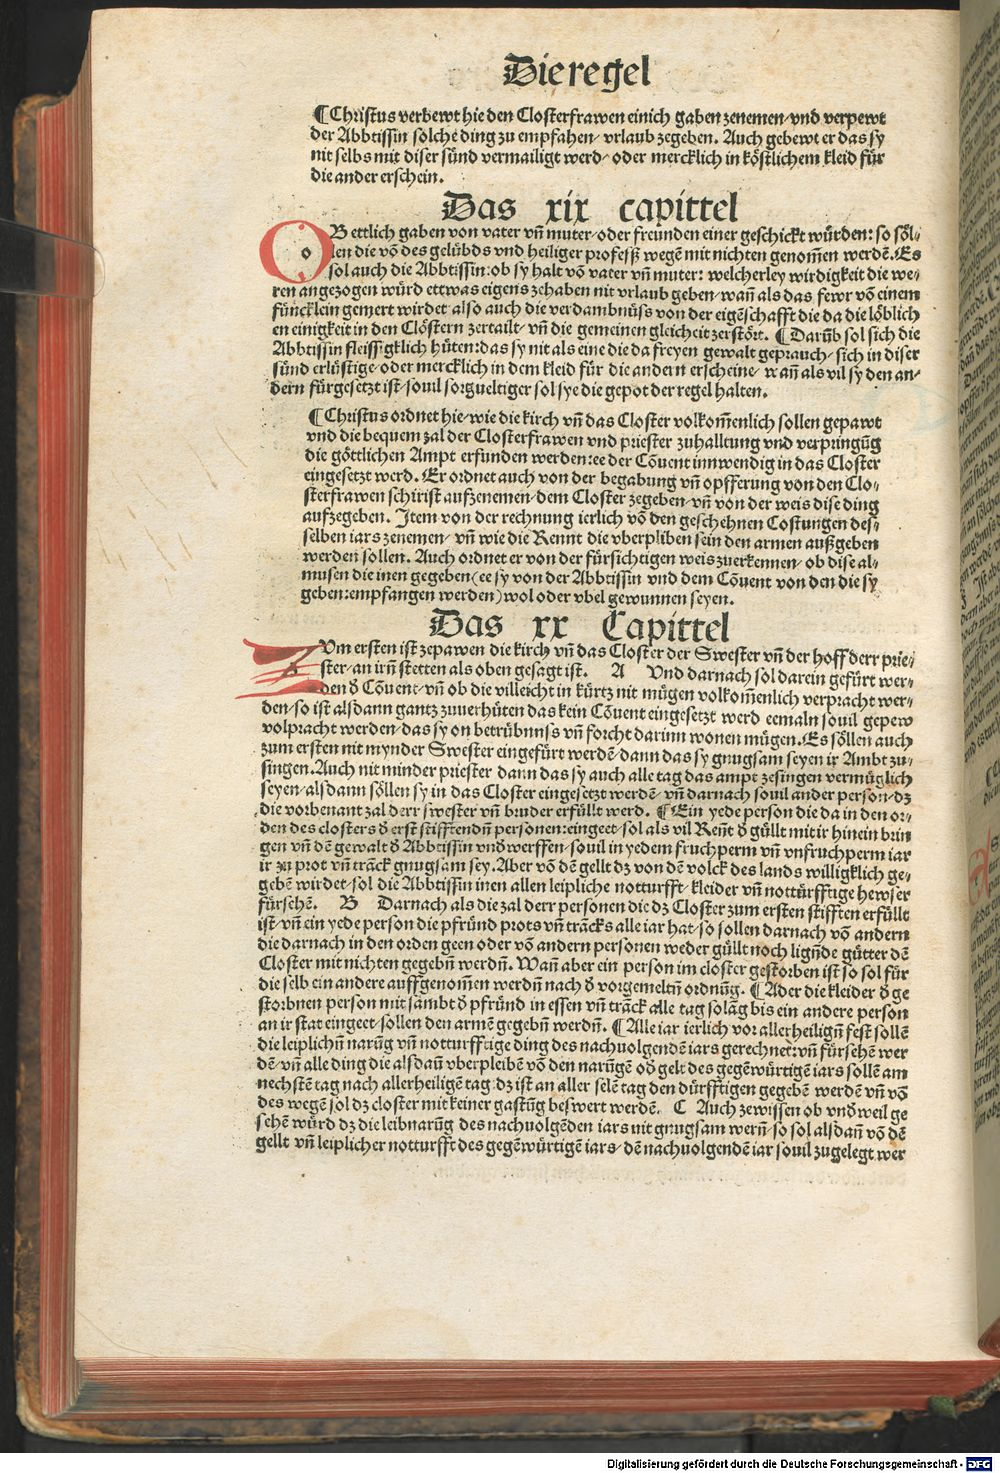 Die regel
¶ Christus verbewt hie den Closterfrawen einich gaben zenemen/ vnd verpewt
der Abbtissin sölche ding zu empfahen/ vrlaub zegeben. Auch gebewt er das sy
nit selbs mit diser sünd vermailigt werd/ oder mercklich in köstlichem kleid für
die ander erschein.
Das xix capittel
OB ettlich gaben von vater vñ muter/ oder freünden einer geschickt würden: so söl-
len die võ des gelübds vnd heiliger profeß wegẽ mit nichten genom̃en werdẽ. Es
sol auch die Abbtissin: ob sy halt võ vater vñ muter: welcherley wirdigkeit die we-
ren angezogen würd ettwas eigens zehaben nit vrlaub geben/ wañ als das fewr võ einem
füncklein gemert wirdet also auch die verdambnüss von der eigẽschafft die da die löblich
en einigkeit in den Clöstern zertailt/ vñ die gemeinen gleicheit zerstört. ¶ Darũb sol sich die
Abbtissin fleissigklich hüten: das sy nit als eine die da freyen gewalt geprauch/ sich in diser
sünd erlüstige/ oder mercklich in dem kleid für die andern erscheine/ wañ als vil sy den an-
dern fürgesetzt ist/ souil sorgueltiger sol sye die gepot der regel halten.
¶ Christus ordnet hie/ wie die kirch vñ das Closter volkom̃enlich sollen gepawt
vnd die bequem zal der Closterfrawen vnd priester zuhalltung vnd verpringũg
die göttlichen Ampt erfunden werden: ee der Cõuent innwendig in das Closter
eingesetzt werd. Er ordnet auch von der begabung vñ opfferung von den Clo-
sterfrawen schirist aufzenemen/ dem Closter zegeben/ vñ von der weis dise ding
aufzegeben. Item von der rechnung ierlich võ den geschehnen Costungen des-
selben iars zenemen/ vñ wie die Rennt die vberpliben sein den armen außgeben
werden sollen. Auch ordnet er von der fürsichtigen weis zuerkennen/ ob dise al-
musen die inen gegeben (ee sy von der Abbtissin vnd dem Cõuent von den die sy
geben: empfangen werden) wol oder vbel gewunnen seyen.
Das xx Capittel
ZVm ersten ist zepawen die kirch vñ das Closter der Swester vñ der hoff derr prie-
ster/ an irñ stetten als oben gesagt ist. A Vnd darnach sol darein gefürt wer-
den ð Cõuent/ vñ ob die villeicht in kürtz nit mügen volkom̃enlich verpracht wer-
den/ so ist alsdann gantz zuuerhüten das kein Cõuent eingesetzt werd eemaln souil gepew
volpracht werden/ das sy on betrübnnss vñ forcht darinn wonen mügen. Es söllen auch
zum ersten nit mynder Swester eingefürt werdẽ/ dann das sy gnugsam seyen ir Ambt zu-
singen. Auch nit minder priester dann das sy auch alle tag das ampt zesingen vermüglich
seyen/ alsdann söllen sy in das Closter eingesetzt werdẽ/ vñ darnach souil ander person/ dz
die vorbenant zal derr swester vñ bruder erfüllt werd. ¶ Ein yede person die da in den or-
den des closters ð erst stifftendñ personen: eingeet/ sol als vil Reñt ð güllt mit ir hinein brin
gen vñ dẽ gewalt ð Abbtissin vnðwerffen/ souil in yedem fruchperm vñ vnfruchperm iar
ir zu prot vñ trãck gnugsam sey. Aber võ dẽ gellt dz von dẽ volck des lands willigklich ge-
gebẽ wirdet/ sol die Abbtissin inen allen leipliche notturfft/ kleider vñ nottürfftige hewser
fürsehẽ. B Darnach als die zal derr personen die dz Closter zum ersten stifften erfüllt
ist/ vñ ein yede person die pfründ prots vñ trãcks alle iar hat/ so sollen darnach võ andern
die darnach in den orden geen oder võ andern personen weder güllt noch ligñde gütter dẽ
Closter mit nichten gegebñ werdñ. Wañ aber ein person im closter gestorben ist so sol für
die selb ein andere auffgenomen werdñ nach ð vorgemeltñ ordnũg. ¶ Ader die kleider ð ge
storbnen person mit sambt ð pfründ in essen vñ trãck alle tag solãg bis ein andere person
an ir stat eingeet/ sollen den armẽ gegebñ werdñ. ¶ Alle iar ierlich vor allerheiligñ fest sollẽ
die leiplichñ narũg vñ notturfftige ding des nachuolgendẽ iars gerechnet: vñ fürsehẽ wer
dẽ/ vñ alle ding die alsdañ vberpleibẽ võ den narũgẽ oð gelt des gegẽwürtigẽ iars sollẽ am
nechstẽ tag nach allerheiligẽ tag/ dz ist an aller selẽ tag den dürfftigen gegebẽ werdẽ vñ võ
des wegẽ sol dz closter mit keiner gastũg beswert werdẽ. C Auch zewissen ob vnð weil ge
sehẽ würd dz die leibnarũg des nachuolgẽden iars nit gnugsam werñ/ so sol alsdañ võ dẽ
gellt vñ leiplicher notturfft des gegẽwürtigẽ iars/ dẽ nachuolgendẽ iar souil zugelegt wer
Digitalisierung gefördert durch die Deutsche Forschungsgemeinschaft - DFG